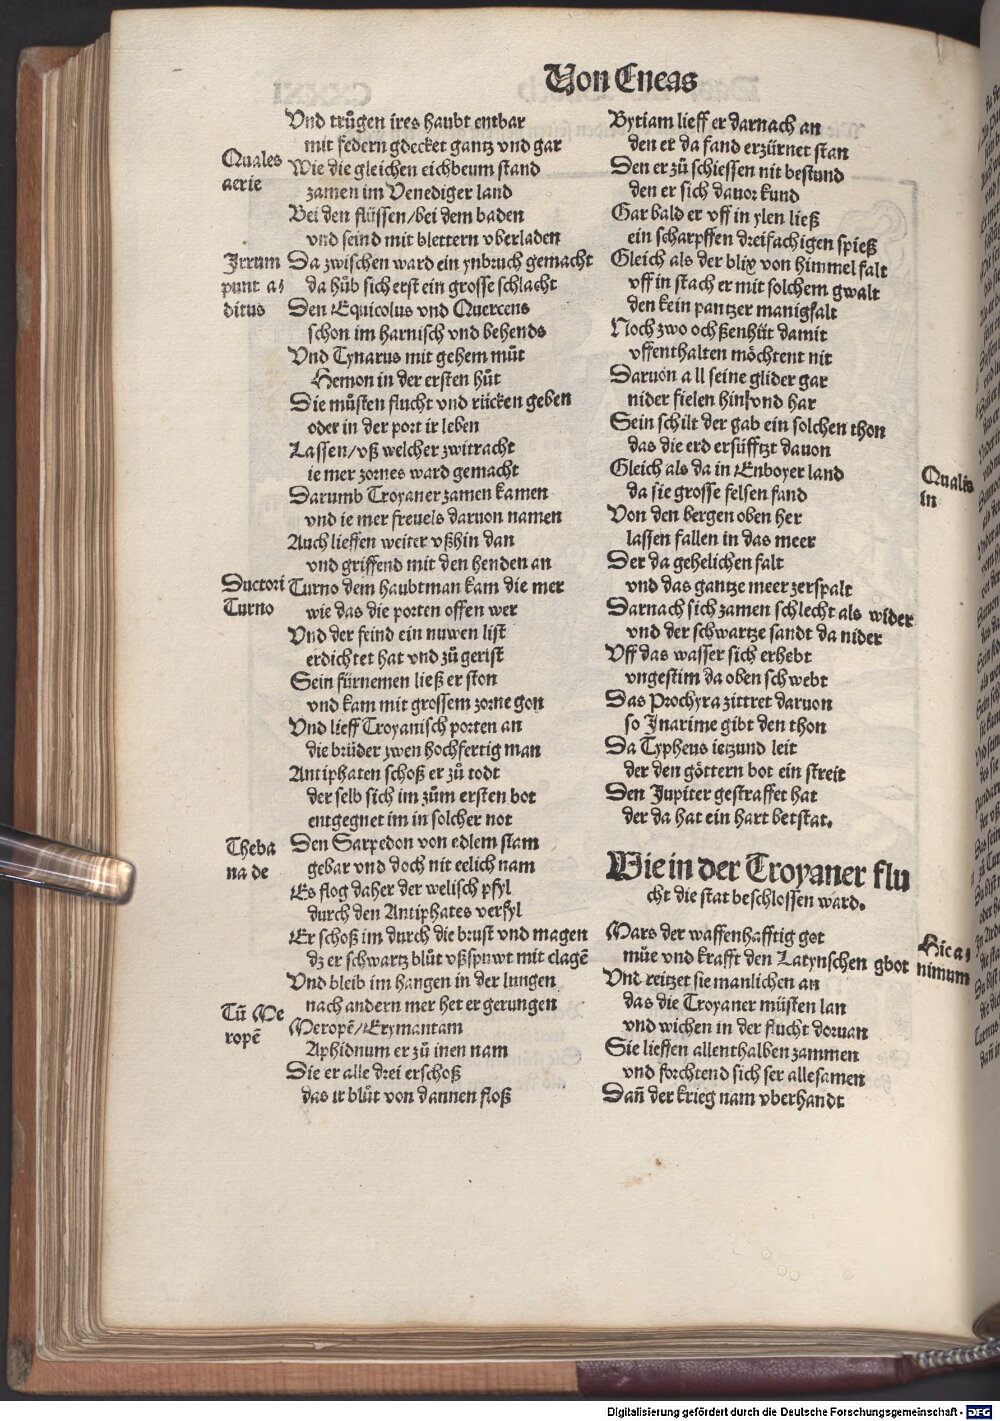 Von Eneas
Vnd trůgen ires haubt entbar
mit federn gdecket gantz vnd gar
Quales
aerie
Wie die gleichen eichbeum stand
zamen im Venediger land
Bei den flüssen/bei dem baden
vnd seind mit blettern vberladen
Irrum
punt a⸗
ditus
Da zwischen ward ein ynbruch gemacht
da hůb sich erst ein grosse schlacht
Den Equicolus vnd Quercens
schon im harnisch vnd behends
Vnd Tynarus mit gehem můt
Hemon in der ersten hůt
Die můsten flucht vnd rücken geben
oder in der port ir leben
Lassen/vß welcher zwitracht
ie mer zornes ward gemacht
Darumb Troyaner zamen kamen
vnd ie mer freuels daruon namen
Auch lieffen weiter vßhin dan
vnd griffend mit den henden an
Ductori
Turno
Turno dem haubtman kam die mer
wie das die porten offen wer
Vnd der feind ein nuwen list
erdichtet hat vnd zů gerist
Sein fürnemen ließ er ston
vnd kam mit grossem zorne gon
Vnd lieff Troyanisch porten an
die brüder zwen hochfertig man
Antiphaten schoß er zů todt
der selb sich im zům ersten bot
entgegnet im in solcher not
Theba
na de
Den Sarpedon von edlem stam
gebar vnd doch nit eelich nam
Es flog daher der welisch pfyl
durch den Antiphates verfyl
Er schoß im durch die brust vnd magen
dz er schwartz blůt vßspuwt mit clagē
Vnd bleib im hangen in der lungen
nach andern mer het er gerungen
Tū Me
ropē
Meropē/Erymantam
Aphidnum er zů inen nam
Die er alle drei erschoß
das ir blůt von dannen floß
Bytiam lieff er darnach an
den er da fand erzürnet stan
Den er zů schiessen nit bestund
den er sich dauor kund
Gar bald er vff in ylen ließ
ein scharpffen dreifachigen spieß
Gleich als der blix von himmel falt
vff in stach er mit solchem gwalt
den kein pantzer manigfalt
Noch zwo ochßenhüt damit
vffenthalten möchtent nit
Daruon all seine glider gar
nider fielen hin vnd har
Sein schilt der gab ein solchen thon
das die erd ersüfftzt dauon
Qualis
in
Gleich als da in Enboyer land
da sie grosse felsen fand
Von den bergen oben her
lassen fallen in das meer
Der da gehelichen falt
vnd das gantze meer zerspalt
Darnach sich zamen schlecht als wider
vnd der schwartze sandt da nider
Vff das wasser sich erhebt
vngestim da oben schwebt
Das Prochyra zittret daruon
so Inarime gibt den thon
Da Typheus ietzund leit
der den göttern bot ein streit
Den Jupiter gestraffet hat
der da hat ein hart betstat.
Wie in der Troyaner flu
cht die stat beschlossen ward.
Hic a⸗
nimum
Mars der waffenhafftig got
můe vnd krafft den Latynschen gbot
Vnd reitzet sie manlichen an
das die Troyaner müsten lan
vnd wichen in der flucht doruan
Sie lieffen allenthalben zammen
vnd forchtend sich ser allesamen
Dañ der krieg nam vberhandt
Digitalisierung gefördert durch die Deutsche Forschungsgemeinschaft - DFG